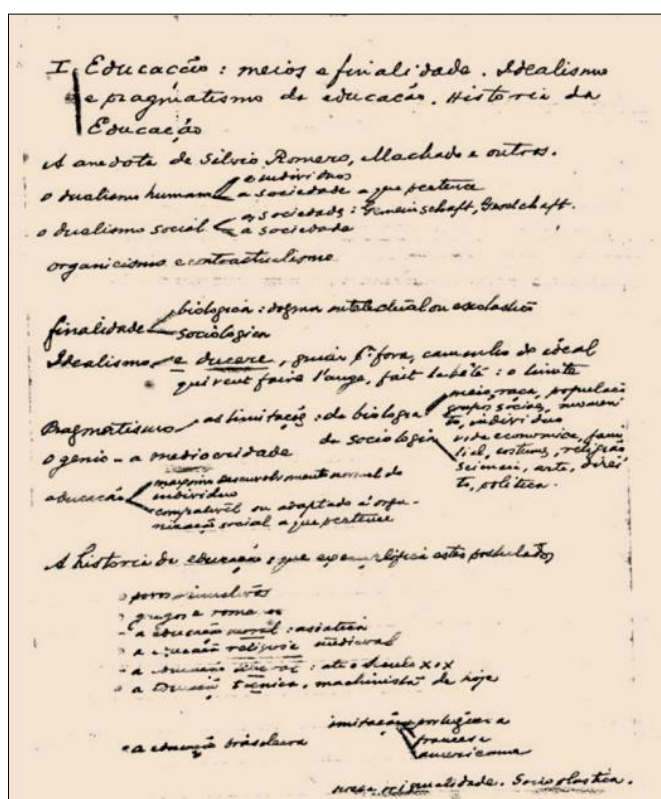 I. Educacção: meios e finalidade. Idealismo
e pragmatismo da educacão. Historia da
Educação
A anedota de Silvio Romero, Machado e outros.
o dualismo humano o individuo
a sociedade a que pertence
o dualismo social as sociedade: Gemeinschaft, Gesellschaft.
a sociedade
organicismo e contractualismo
finalidade biologica: dogma intelectual ou escolastico
sociologica
Idealismo e ducere, guiar pª fora, caminho do ideal
qui veut faire l'ange, fait la bête: o limite
Pragmatismo as limitaçs: da biologia meio, raça, populacã
grupos sociaes,
to, individuo
da sociologia vida economica, fami
lial, costumes, religião
sciencia, arte, direi
to, politica.
o genio - a mediocridade
educacão maximo desenvolvimento normal do
individuo
compativel ou adaptado á orga-
nização social a que pertence
A historia da educação: que exemplifica estes postulados
povos primitivos
gregos e romanos
- a educação moral: asiatica
a educação religiosa medieval
- a educação liberal: até o seculo XIX
a educação tecnica, machinista de hoje
- a educação brasileira imitação portuguesa
francesa
americana
nossa originalidade. Socioplastica.